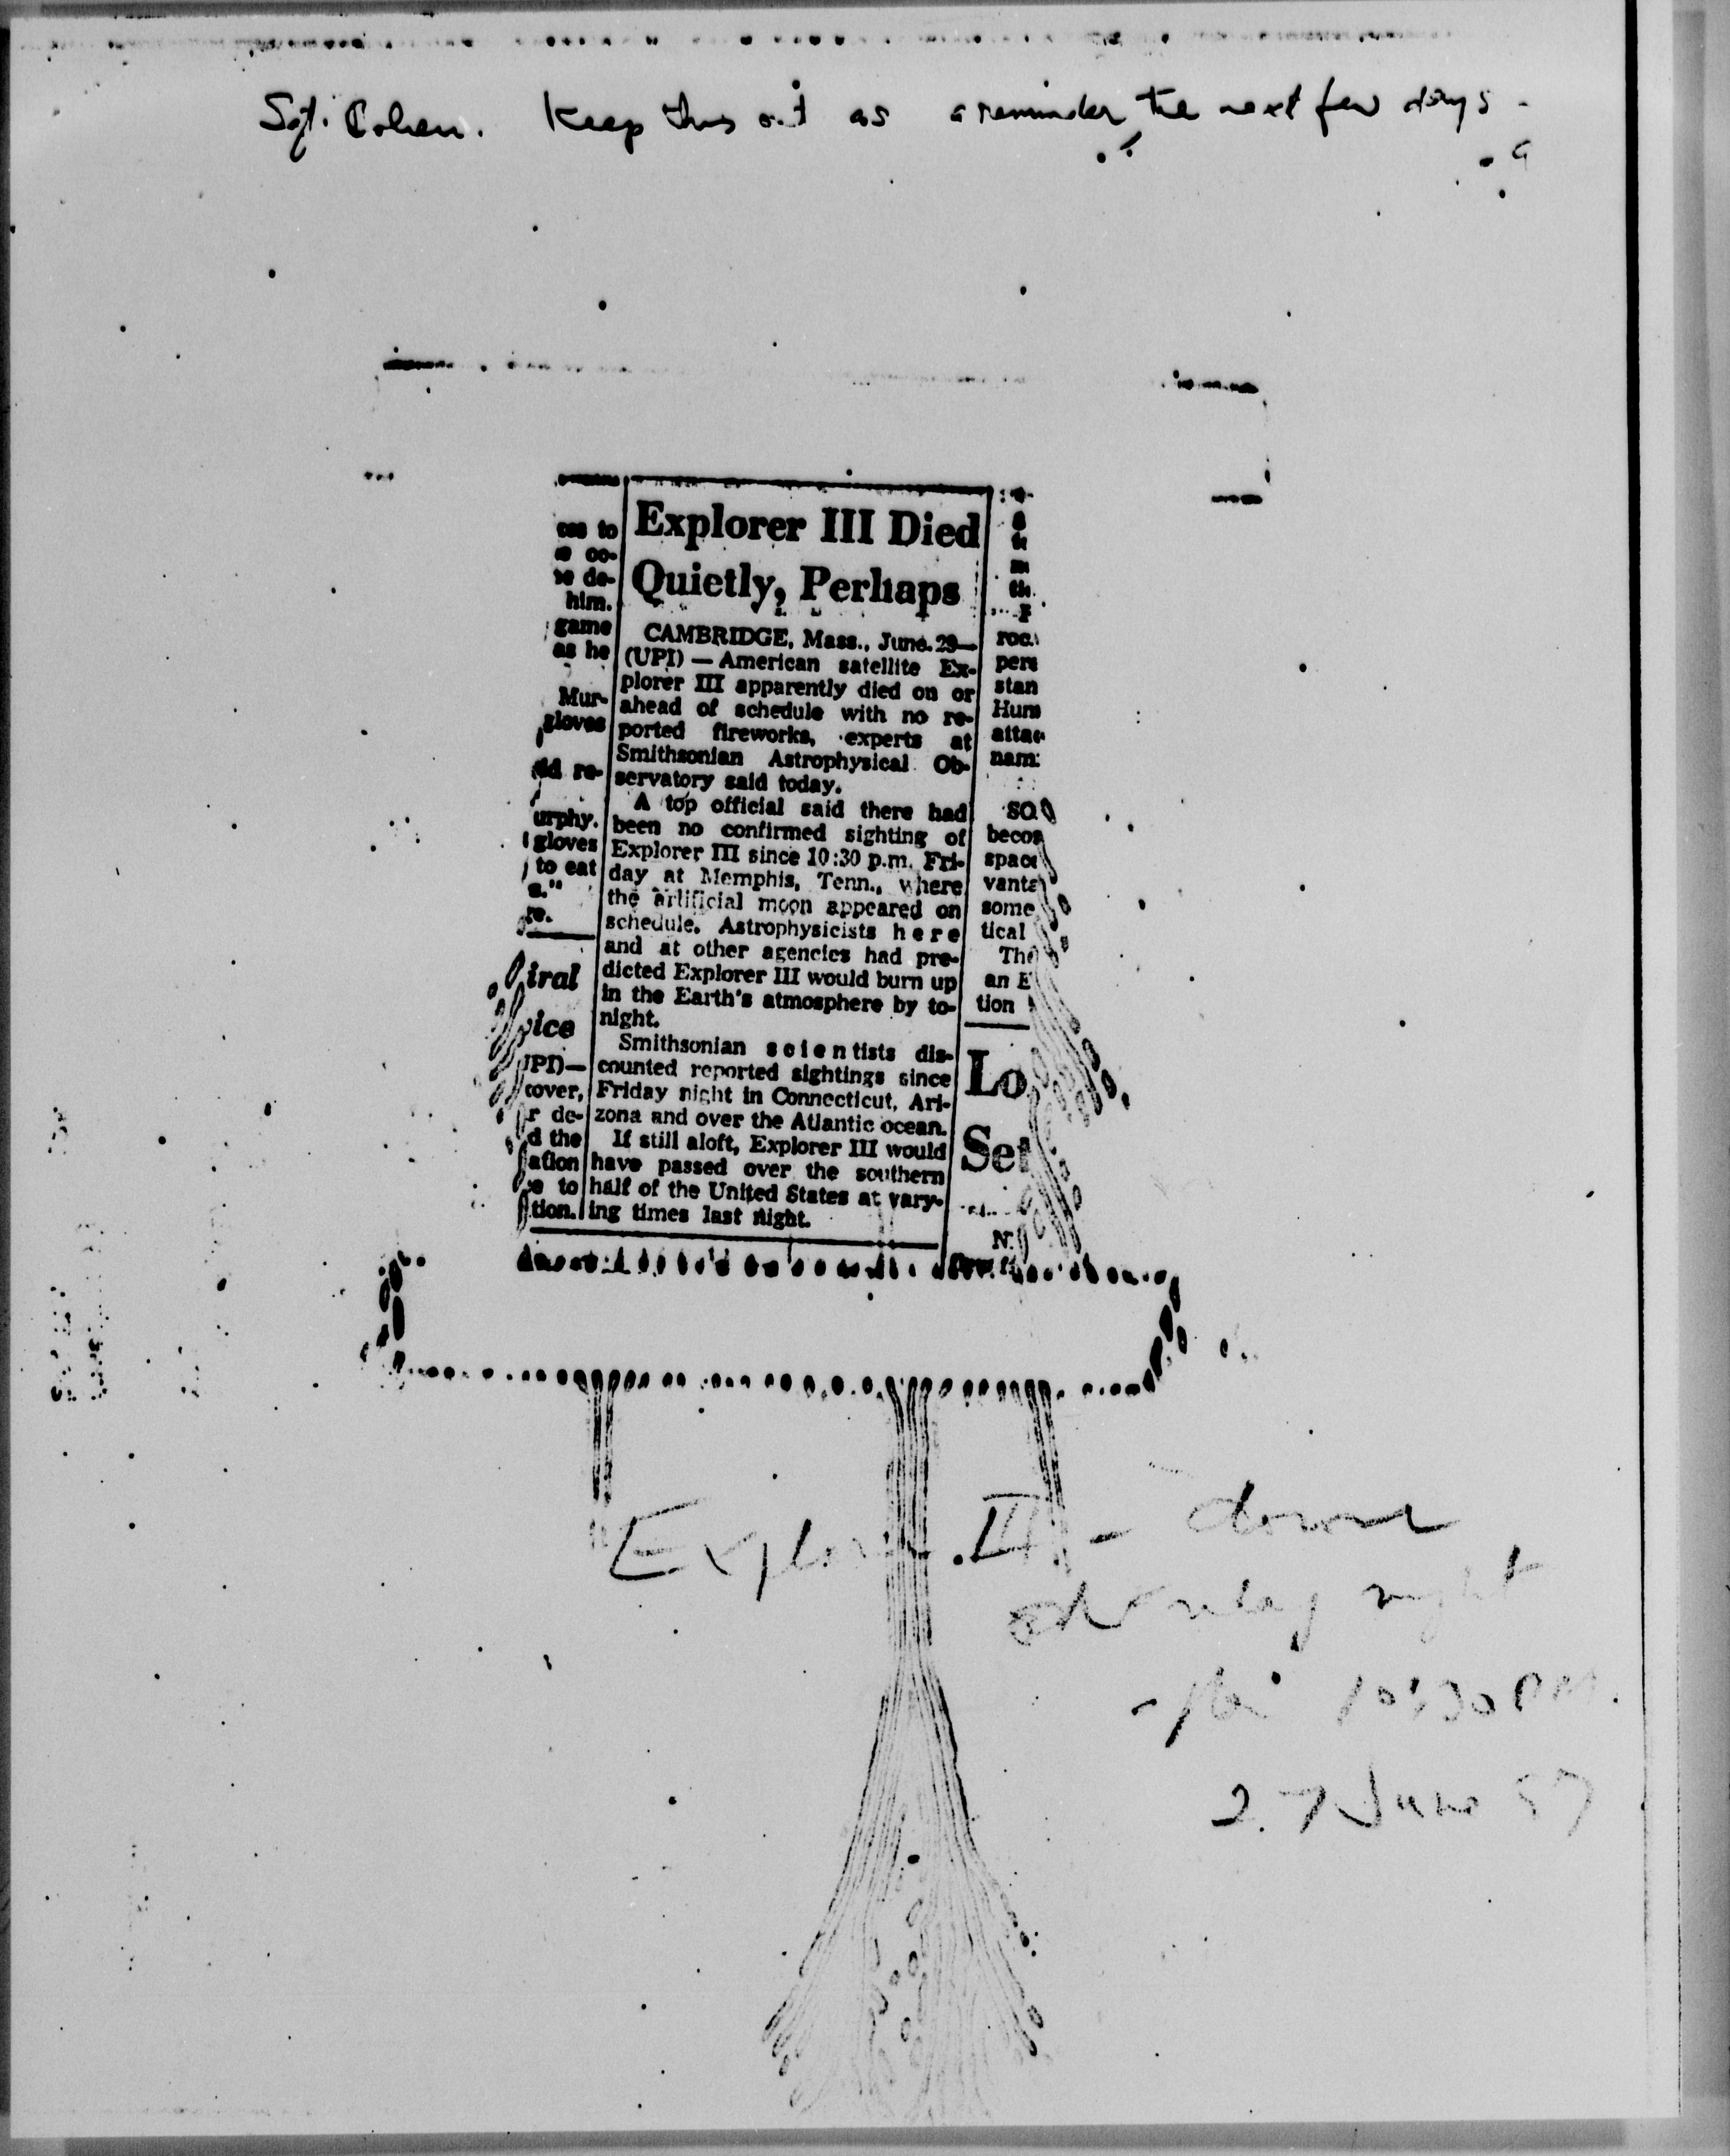 Sgt. Cohen. Keep this out as a reminder the next few days -
Explorer III Died
Quietly, Perhaps
CAMBRIDGE, Mass., June 29—
(UPI) — American satellite Ex-
plorer III apparently died on or
ahead of schedule with no re-
ported fireworks, experts at
Smithsonian Astrophysical Ob-
servatory said today.
A top official said there had
been no confirmed sighting of
Explorer III since 10:30 p.m. Fri-
day at Memphis, Tenn., where
the artificial moon appeared on
schedule. Astrophysicists here
and at other agencies had pre-
dicted Explorer III would burn up
in the Earth's atmosphere by to-
night.
Smithsonian scientists dis-
counted reported sightings since
Friday night in Connecticut, Ari-
zona and over the Atlantic ocean.
If still aloft, Explorer III would
have passed over the southern
half of the United States at vary-
ing times last night.
him.
game
as he
Mur-
gloves
re-
urphy.
gloves
to eat
iral
ice
UPI)—
cover,
r de-
d the
to
tion.
pers
stan
SO
space
some
tical
an E
tion
Lo
Set
Explorer III - down
night
10:30 PM.
27 June 57